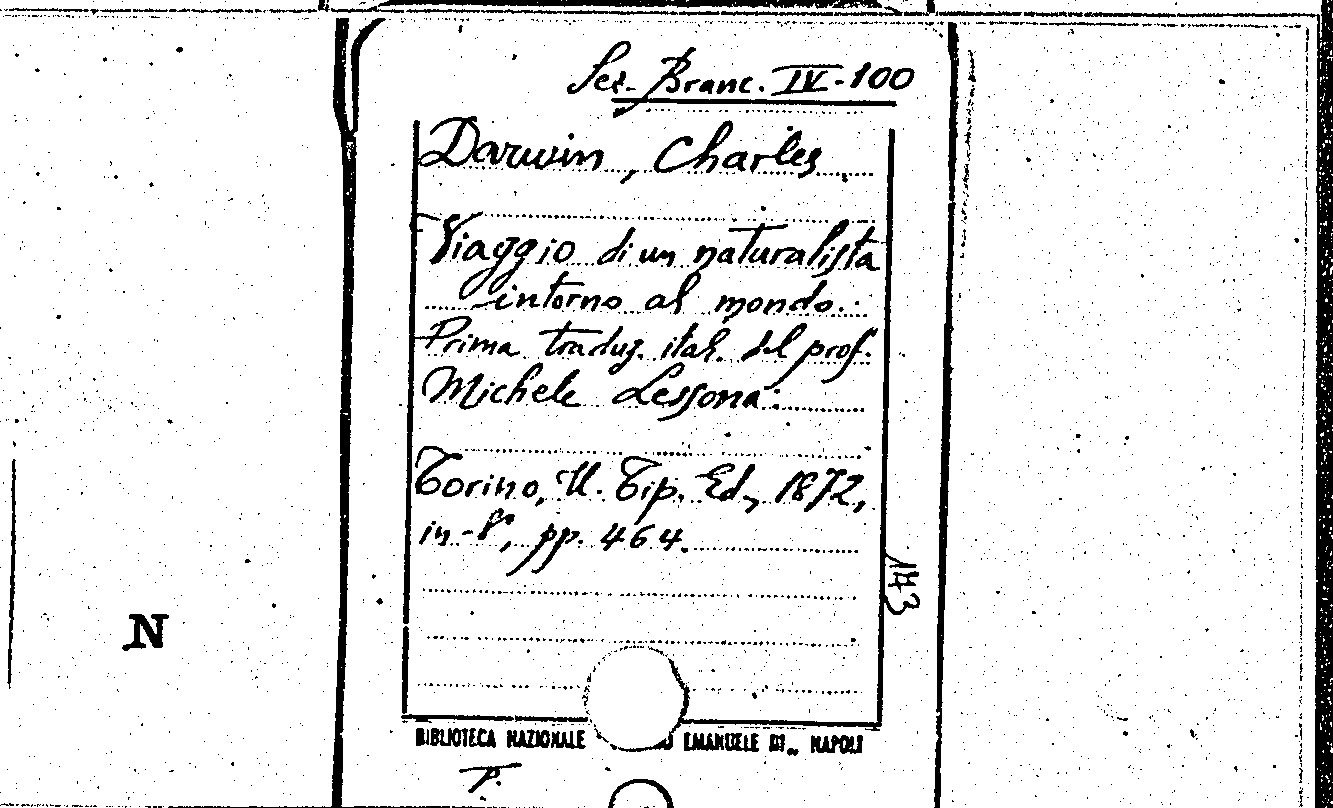 Sez. Branc. IV-100
Darwin, Charles
Viaggio di un naturalista
intorno al mondo.
Prima traduz. ital. del prof.
Michele Lessona.
Torino, U. Tip. Ed., 1872,
in-8°, pp. 464.
143
N
BIBLIOTECA NAZIONALE EMANUELE III„ NAPOLI